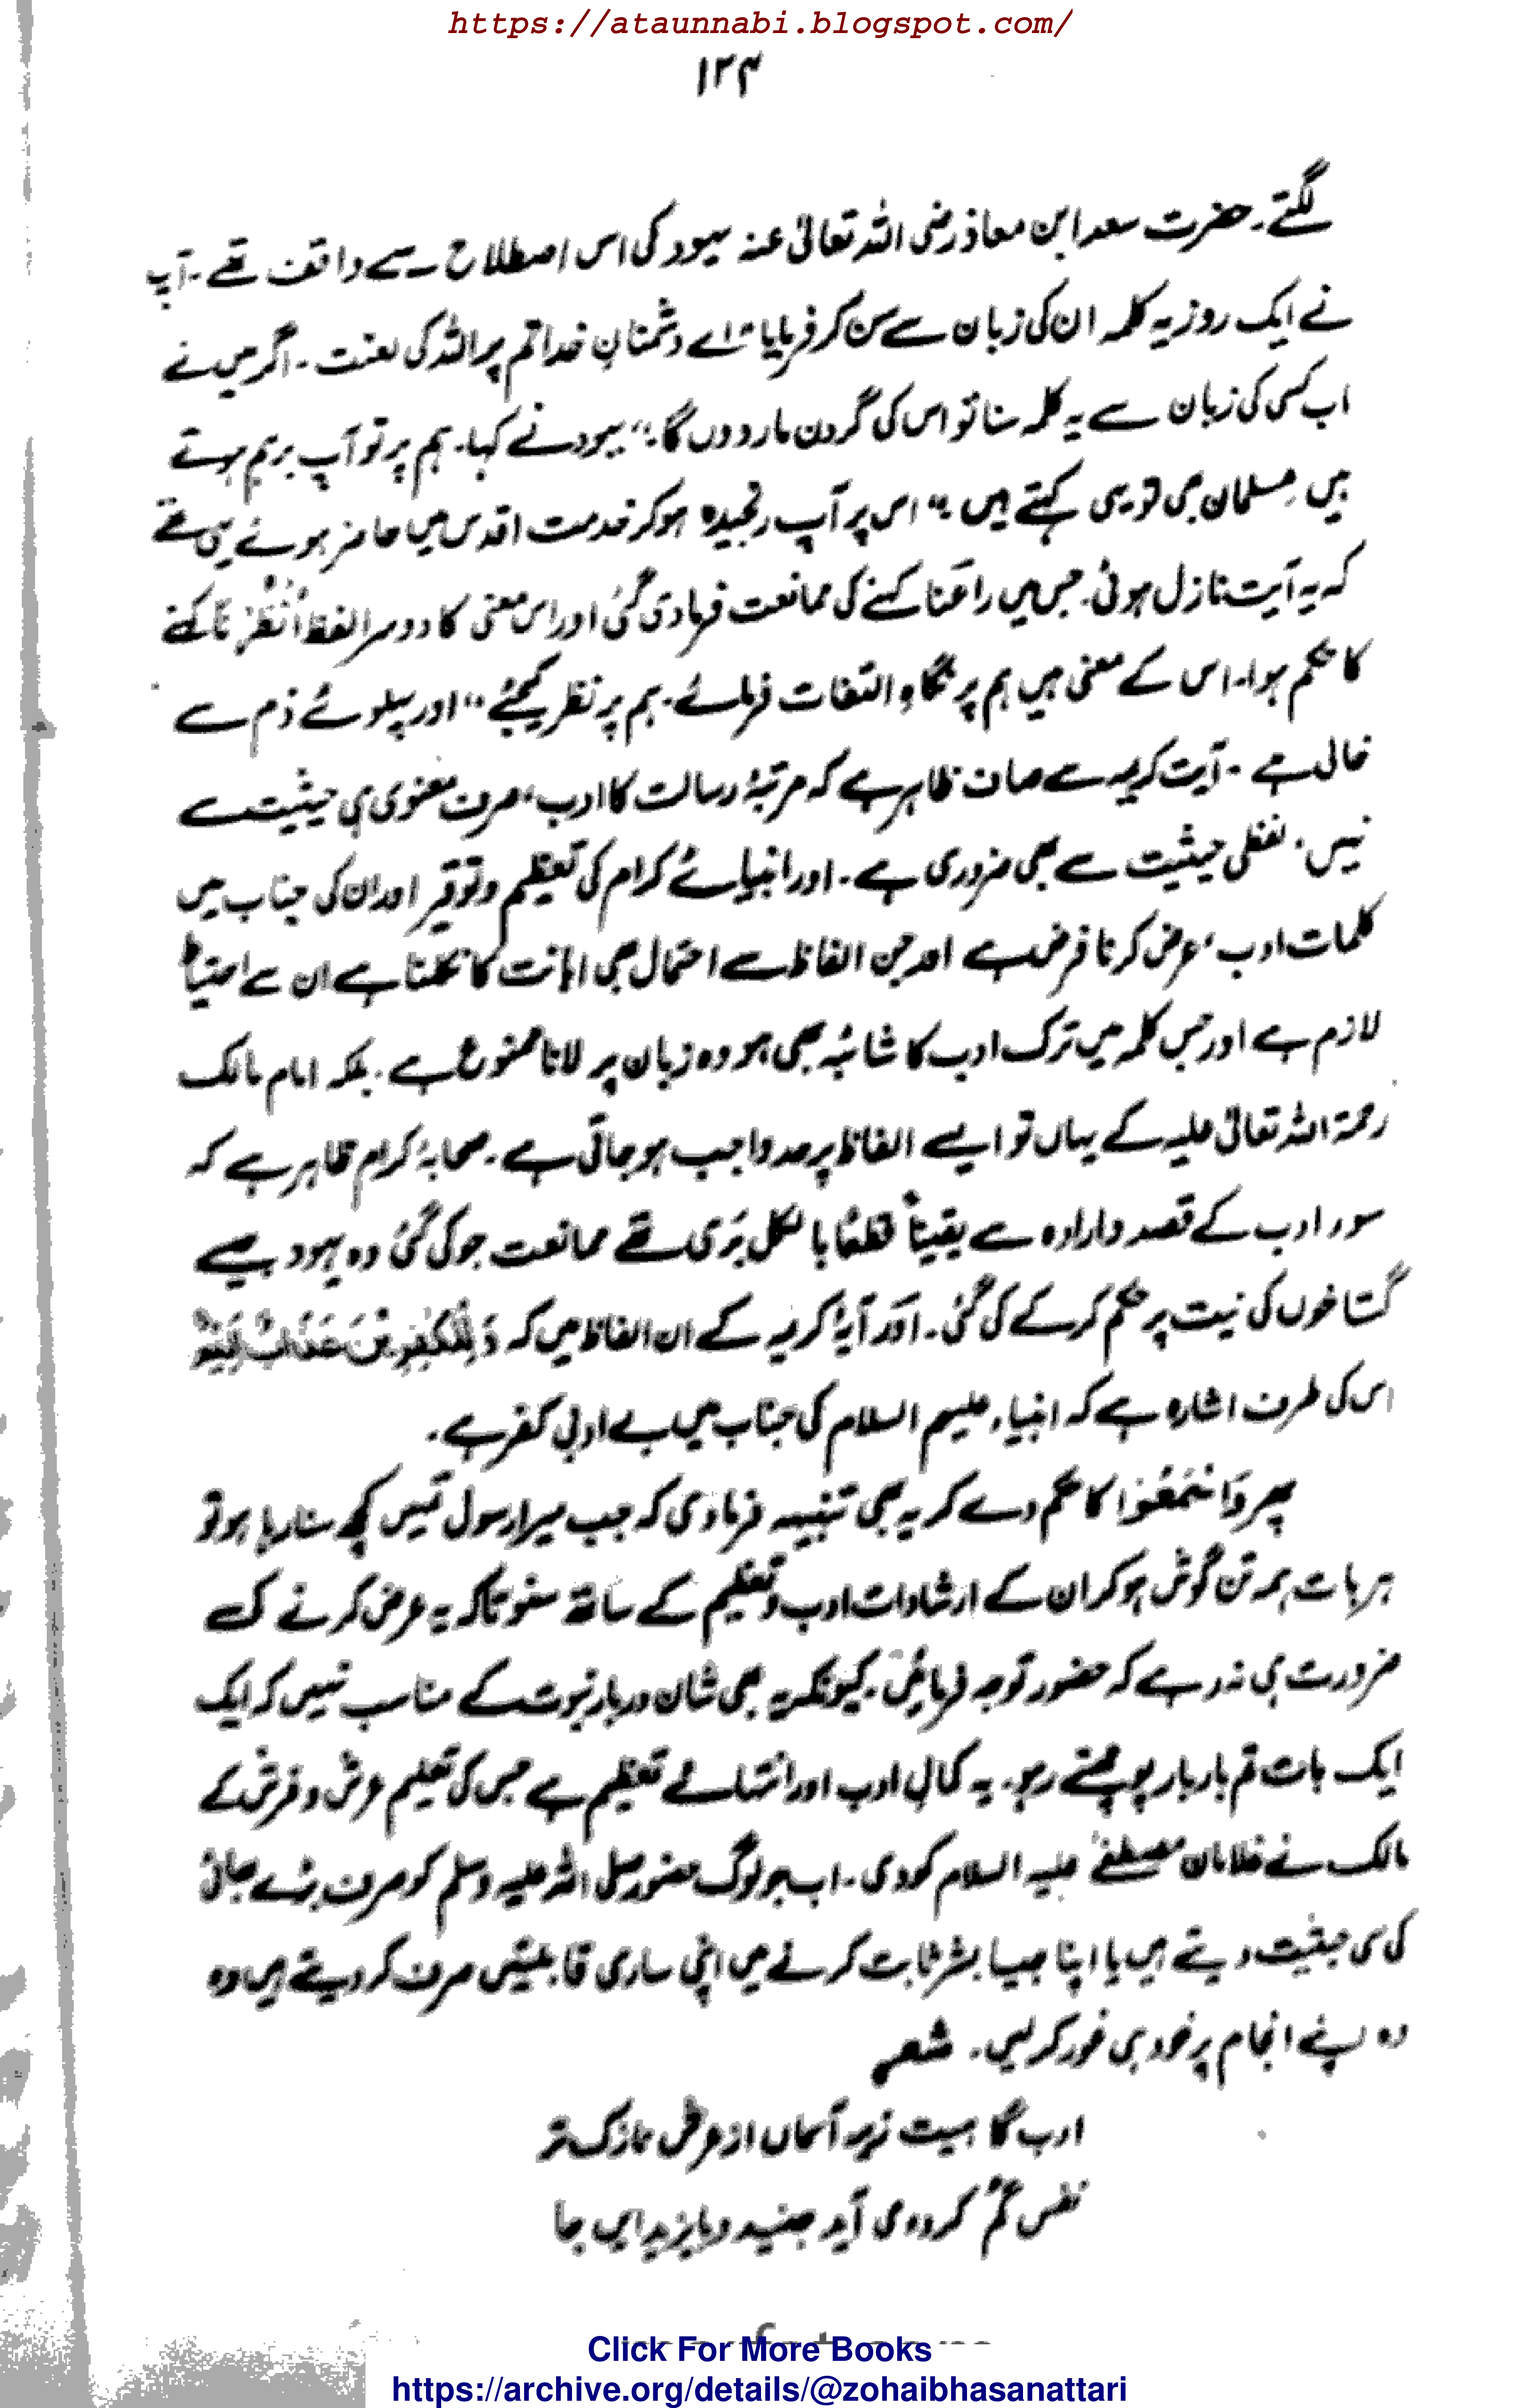 https://ataunnabi.blogspot.com/
۱۲۴
لگتے۔ حضرت سعد ابن معاذ رضی اللہ تعالیٰ عنہ یہود کی اس اصطلاح سے واقف تھے۔ آپ
نے ایک روز یہ کلمہ ان کی زبان سے سن کر فرمایا "اے دشمنانِ خدا تم پر اللہ کی لعنت۔ اگر میں نے
اب کسی کی زبان سے یہ کلمہ سنا تو اس کی گردن مار دوں گا۔" یہود نے کہا۔ ہم پر تو آپ برہم ہوتے
ہیں۔ مسلمان بھی تو یہی کہتے ہیں۔" اس پر آپ رنجیدہ ہو کر خدمت اقدس میں حاضر ہوئے ہی تھے
کہ یہ آیت نازل ہوئی۔ جس میں راعنا کہنے کی ممانعت فرما دی گئی اور اس معنی کا دوسرا لفظ اُنْظُرْنَا کہنے
کا حکم ہوا۔ اس کے معنی ہیں ہم پر نگاہِ التفات فرمائے۔ ہم پر نظر کیجئے" اور پہلوئے ذم سے
خالی ہے۔ آیت کریمہ سے صاف ظاہر ہے کہ مرتبۂ رسالت کا ادب، صرف معنوی ہی حیثیت سے
نہیں۔ لفظی حیثیت سے بھی ضروری ہے۔ اور انبیائے کرام کی تعظیم و توقیر اور ان کی جناب میں
کلمات ادب، عرض کرنا فرض ہے اور جن الفاظ سے احتمال بھی اہانت کا نکلتا ہے ان سے احتیاط
لازم ہے اور جس کلمہ میں ترک ادب کا شائبہ بھی ہو وہ زبان پر لانا ممنوع ہے۔ بلکہ امام مالک
رحمۃ اللہ تعالیٰ علیہ کے یہاں تو ایسے الفاظ پر حد واجب ہو جاتی ہے۔ صحابۂ کرام ظاہر ہے کہ
سوء ادب کے قصد و ارادہ سے یقیناً قطعاً بالکل بری تھے ممانعت جو کی گئی وہ یہود جیسے
گستاخوں کی نیت پر حکم کر کے کی گئی۔ اور آیۂ کریمہ کے ان الفاظ میں کہ وَلِلْكٰفِرِيْنَ عَذَابٌ اَلِيْمٌ
اس کی طرف اشارہ ہے کہ انبیاء علیہم السلام کی جناب میں بے ادبی کفر ہے۔
پھر وَاسْمَعُوْا کا حکم دے کر یہ بھی تنبیہہ فرما دی کہ جب میرا رسول تمہیں کچھ سنا رہا ہو تو
ہر بات ہمہ تن گوش ہو کر ان کے ارشادات ادب و تعظیم کے ساتھ سنو تاکہ یہ عرض کرنے کی
ضرورت ہی نہ رہے کہ حضور توجہ فرمائیں۔ کیونکہ یہ بھی شان دربار نبوت کے مناسب نہیں کہ ایک
ایک بات تم بار بار پوچھتے رہو۔ یہ کمالِ ادب اور انتہائے تعظیم ہے جس کی تعلیم عرش و فرش کے
مالک نے غلامان مصطفےٰ علیہ السلام کو دی۔ اب جو لوگ حضور صلی اللہ علیہ وسلم کو صرف بڑے بھائی
کی سی حیثیت دیتے ہیں یا اپنا جیسا بشر ثابت کرنے میں اپنی ساری قابلیتیں صرف کر دیتے ہیں وہ
وہ اپنے انجام پر خود ہی غور کرلیں۔ شعر
ادب گاہیست زیر آسماں از عرش نازک تر
نفس گم کردہ می آید جنید و بایزید ایں جا
Click For More Books
https://archive.org/details/@zohaibhasanattari